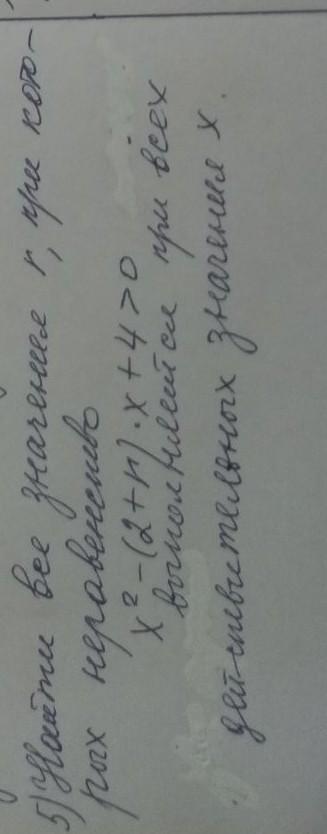 5) Найти все значения r, при кото-
рых неравенство
x² - (2+r)·x + 4 > 0
выполняется при всех
действительных значениях x.